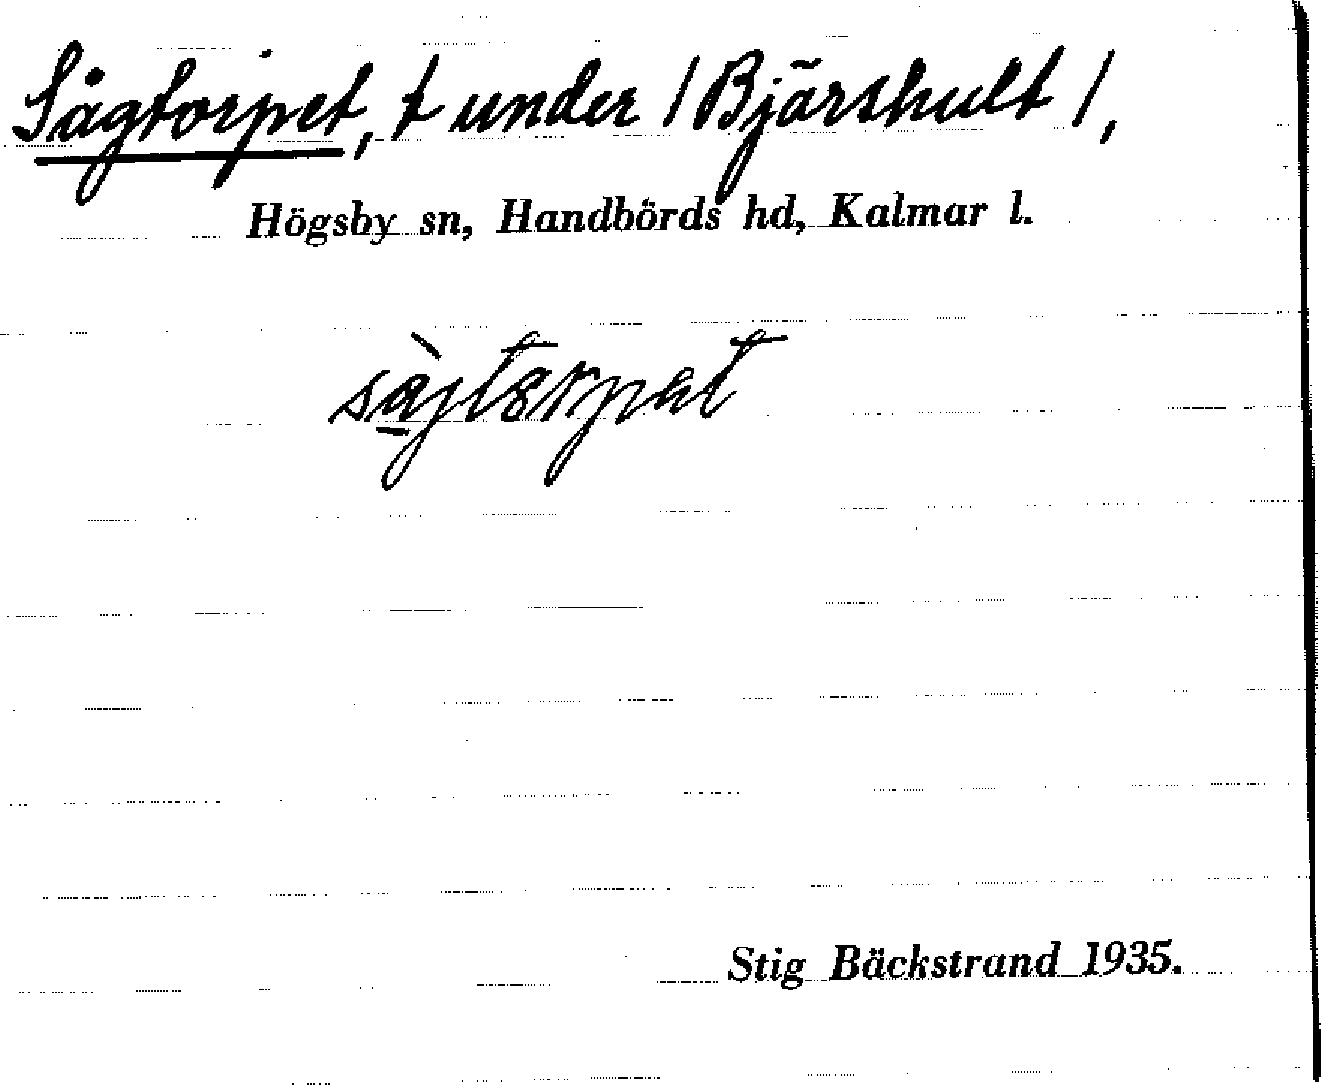 Sågtorpet, t under / Bjärshult /,
Högsby sn, Handbörds hd, Kalmar l.
Stig Bäckstrand 1935.